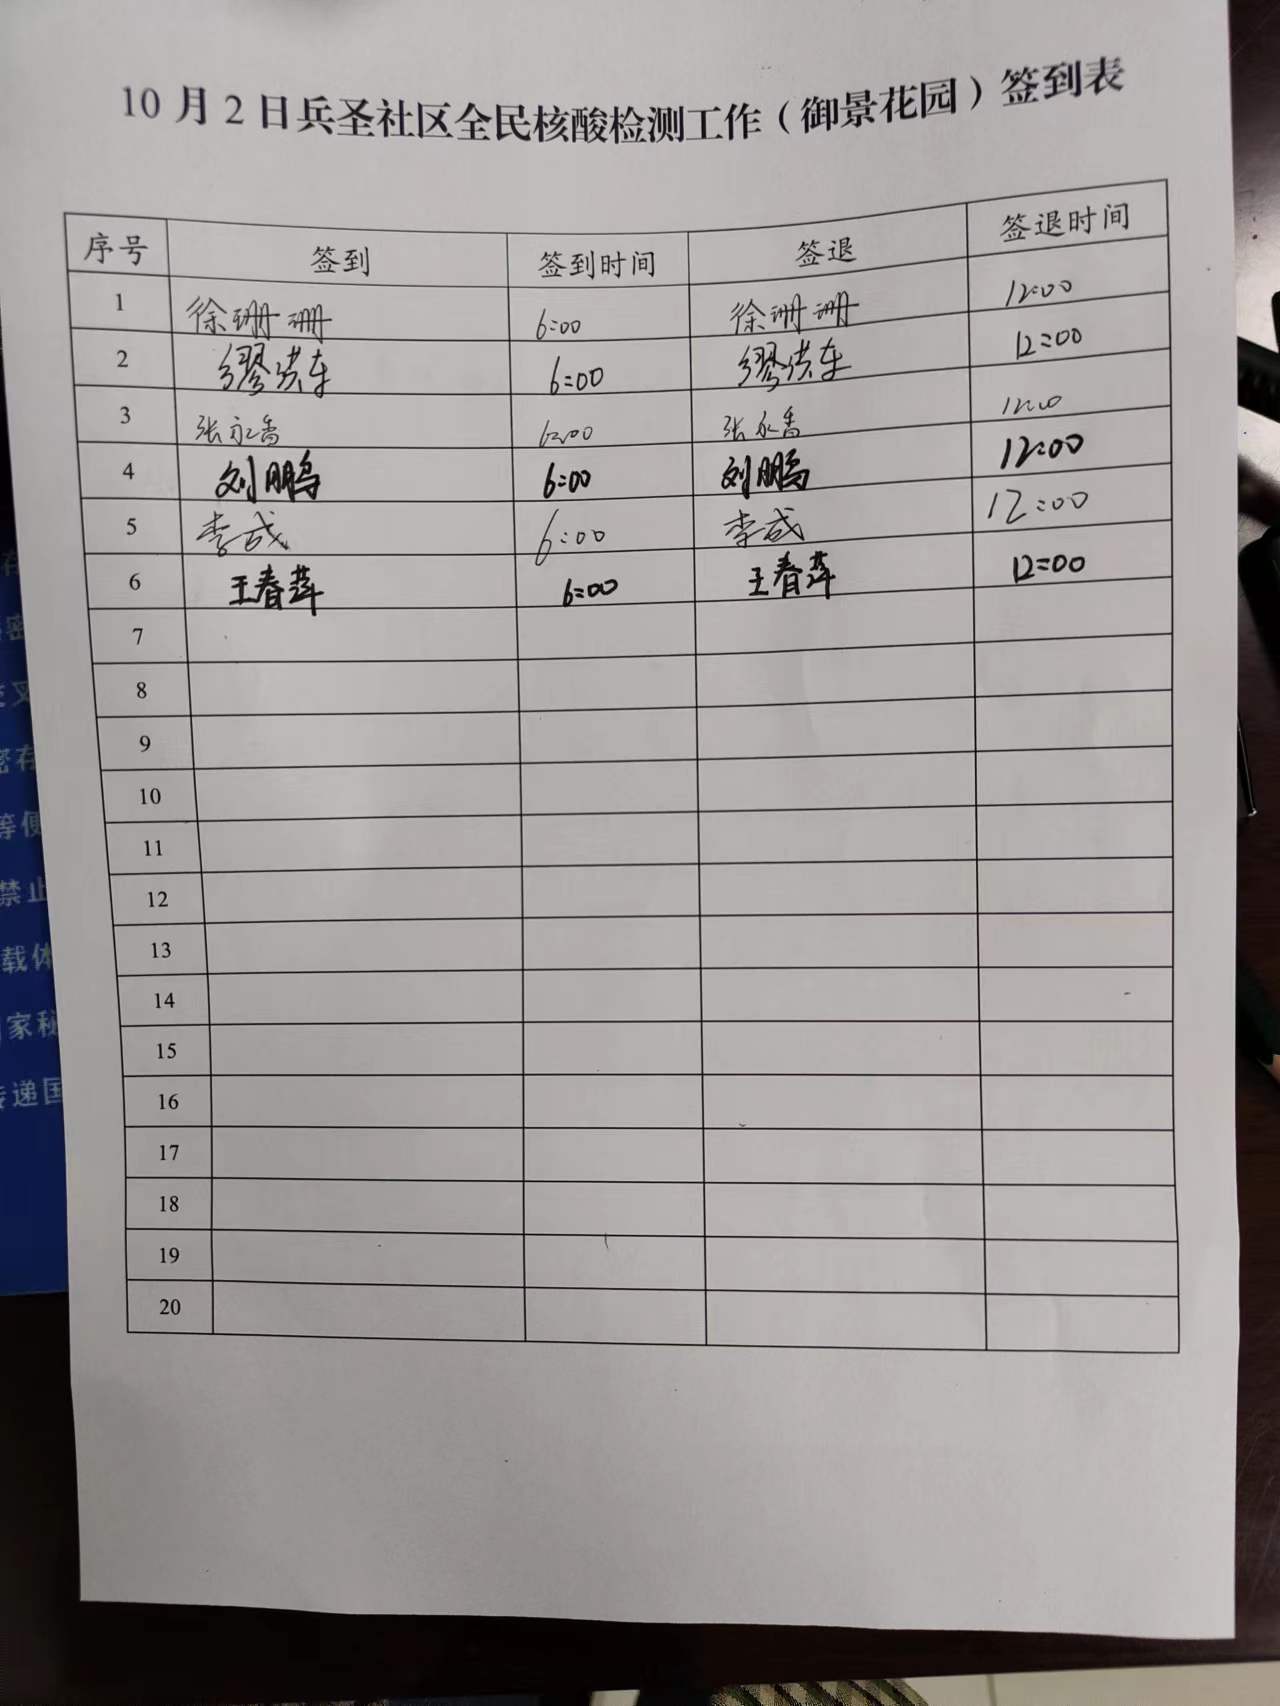 10月2日兵圣社区全民核酸检测工作（御景花园）签到表
序号 签到 签到时间 签退 签退时间
1 徐珊珊 6:00 徐珊珊 12:00
2 缪洪车 6:00 缪洪车 12:00
3 张永香 6:00 张永香 12:00
4 刘鹏 6:00 刘鹏 12:00
5 李成 6:00 李成 12:00
6 王春萍 6:00 王春萍 12:00
7
8
9
10
11
12
13
14
15
16
17
18
19
20
密
叉
密存
等便
禁止
载体
家秘
传递国